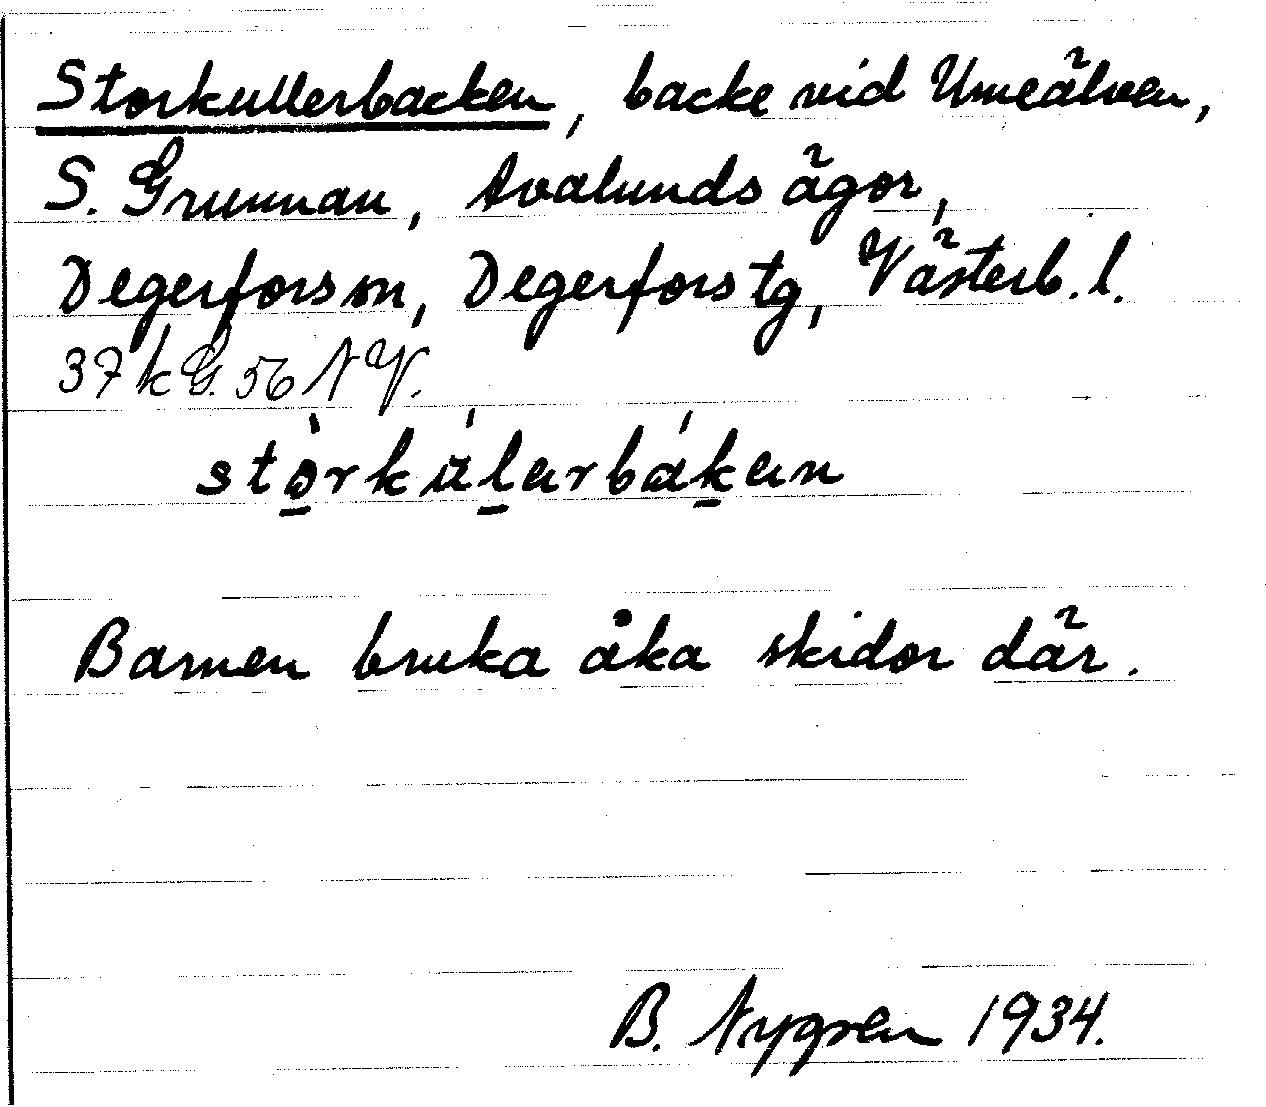 Storkullerbacken, backe vid Umeälven,
S. Grunnan, Avalunds ägor,
Degerfors sn, Degerfors tg, Västerb. l.
37 k G. 56 N V.
stòrkúlərbákən
Barnen bruka åka skidor där.
B. Nygren 1934.